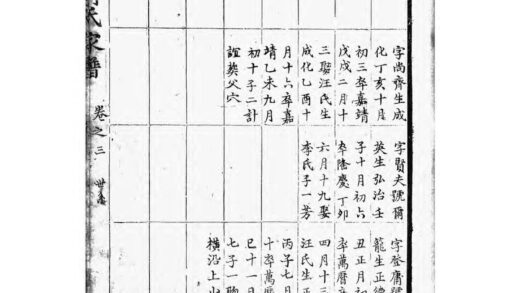 字尚齊生成
化丁亥十月
初三卒嘉靖
戊戌二月十
三娶汪氏生
成化乙酉十
月十六卒嘉
靖乙未九月
初十子二計
誼葬父穴
字賢夫號爾
英生弘治壬
子十月初六
卒隆慶丁卯
六月十九娶
李氏子一芳
字登庸
龍生正德
丑正月初
卒萬曆
四月十三
汪氏生正
丙子七月
十卒萬曆
巳十一
七子一
橫沿上
氏家譜
卷之三